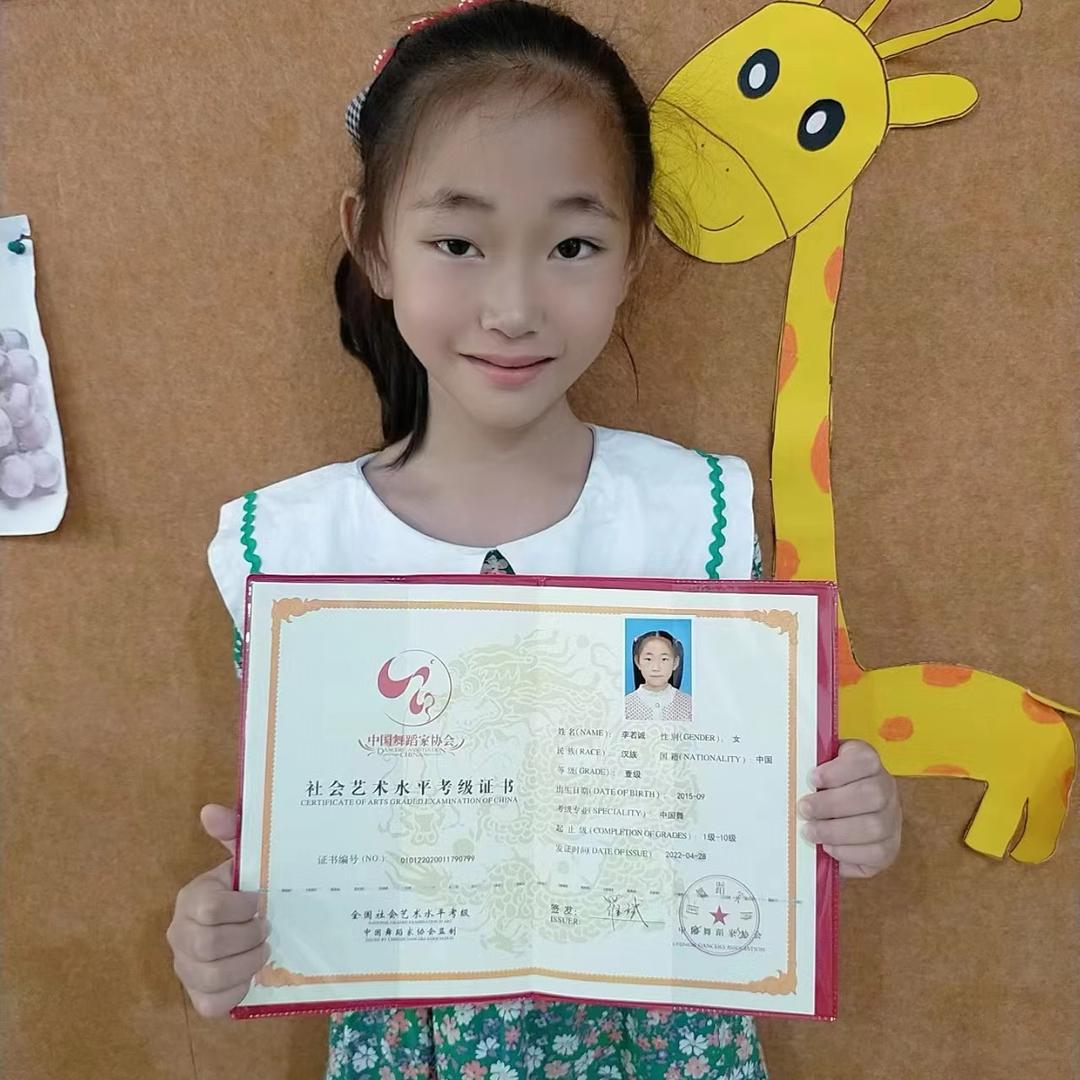 中国舞蹈家协会
CHINA
社会艺术水平考级证书
CERTIFICATE OF ARTS GRADED EXAMINATION OF CHINA
证书编号 (NO.) 010122020011790799
全国社会艺术水平考级
中国舞蹈家协会监制
姓名(NAME): 李若诚 性别(GENDER): 女
民族(RACE): 汉族 国籍(NATIONALITY): 中国
等级(GRADE): 壹级
出生日期(DATE OF BIRTH): 2015-09
考级专业(SPECIALITY): 中国舞
起止级(COMPLETION OF GRADES): 1级-10级
发证时间(DATE OF ISSUE) 2022-04-28
签发:
ISSUER:
中国舞蹈家协会
CHINESE DANCERS ASSOCIATION